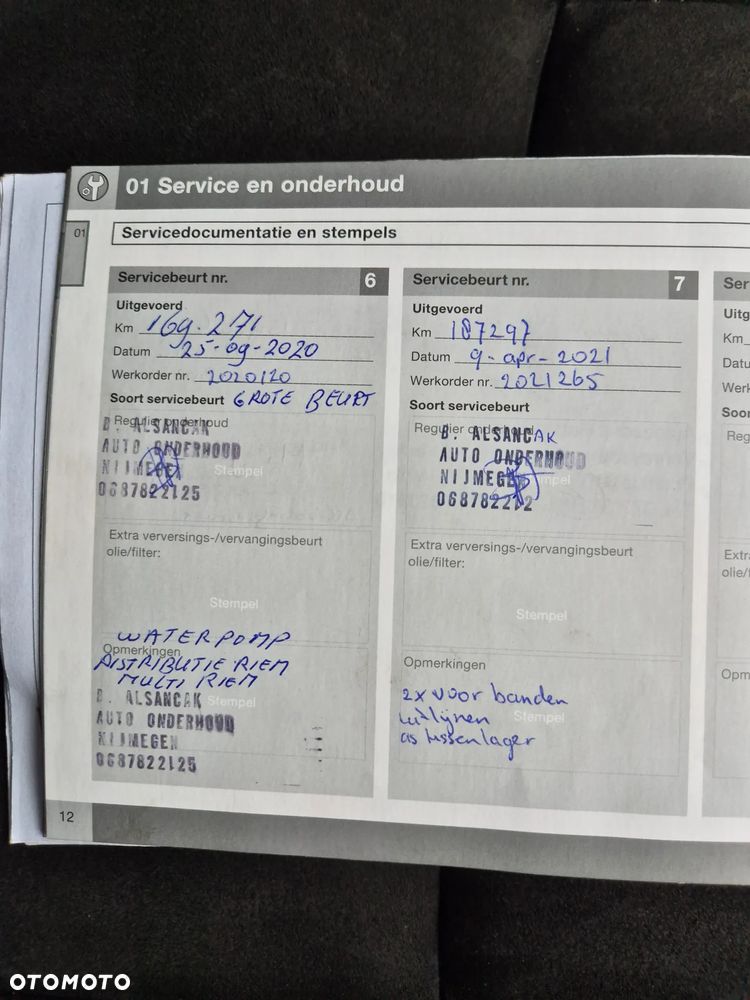 01 Service en onderhoud
01
Servicedocumentatie en stempels
Servicebeurt nr. 6
Uitgevoerd
Km 169.271
Datum 25-09-2020
Werkorder nr. 2020120
Soort servicebeurt GROTE BEURT
Regulier onderhoud
B. ALSANCAK
AUTO ONDERHOUD
NIJMEGEN
Stempel
0687822125
Extra verversings-/vervangingsbeurt
olie/filter:
Stempel
WATERPOMP
Opmerkingen
DISTRIBUTIE RIEM
MULTI RIEM
B. ALSANCAK
Stempel
AUTO ONDERHOUD
NIJMEGEN
0687822125
Servicebeurt nr. 7
Uitgevoerd
Km 187297
Datum 9-apr-2021
Werkorder nr. 2021265
Soort servicebeurt
Regulier onderhoud
B. ALSANCAK
AUTO ONDERHOUD
NIJMEGEN
Stempel
Extra verversings-/vervangingsbeurt
olie/filter:
Stempel
Opmerkingen
2x voor banden
uitlijnen
Stempel
as tussenlager
Ser
Uitg
Km
Datu
Werk
Soor
Reg
Extr
olie/f
Opm
12
OTOMOTO